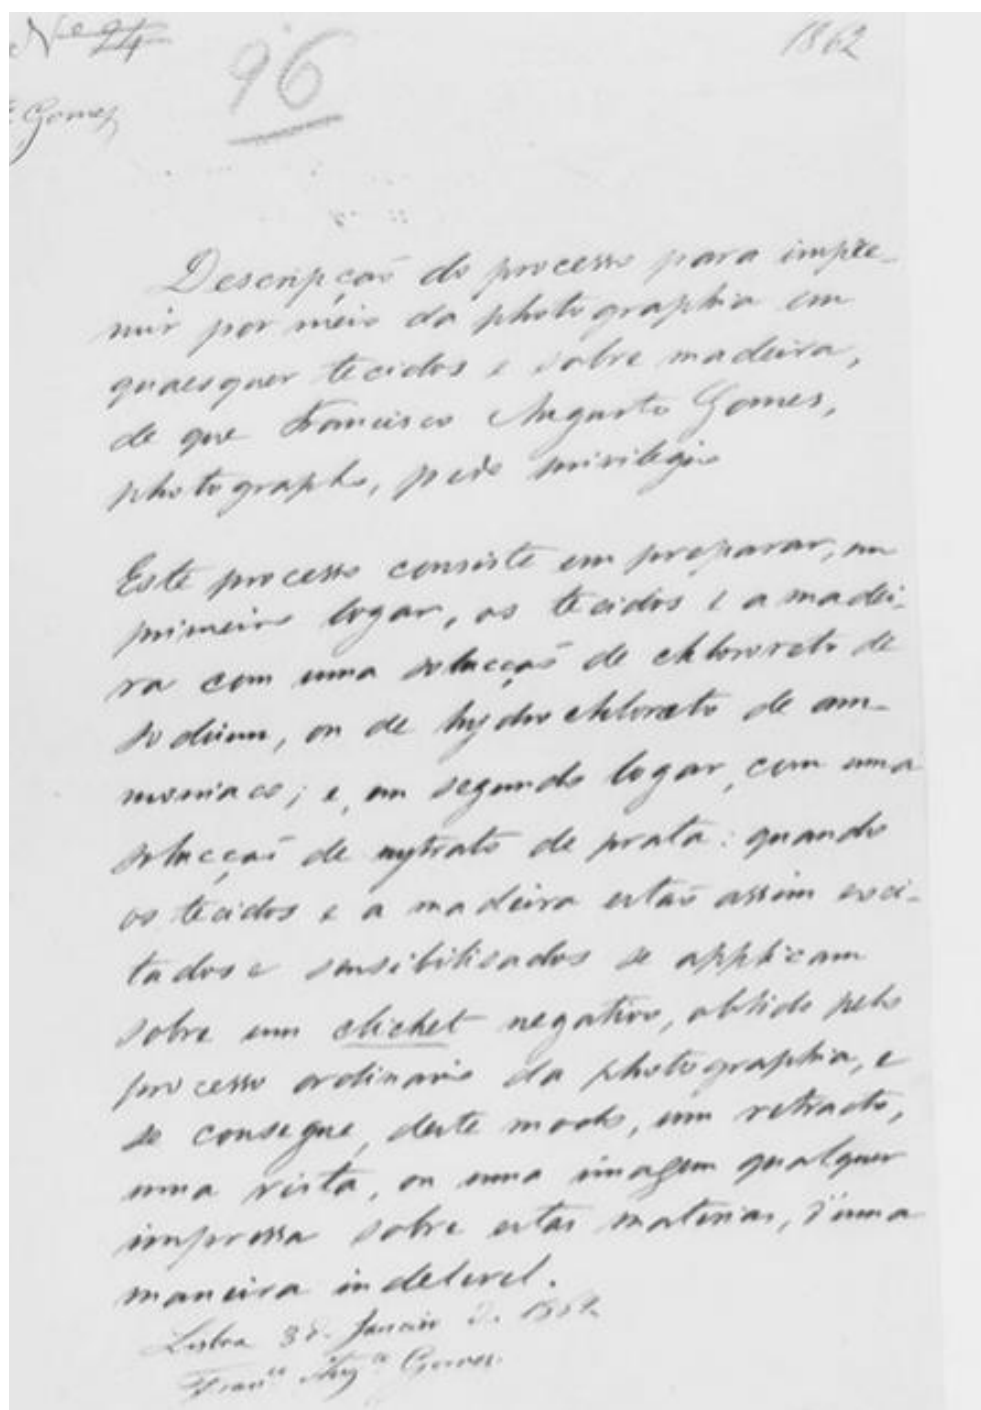 Nº 24
96
1862
Gomes
Descripção do processo para impre-
mir por meio da photographia em
quaesquer tecidos e sobre madeira,
de que Francisco Augusto Gomes,
photographo, pede privilegio
Este processo consiste em preparar, em
primeiro logar, os tecidos e a madei-
ra com uma solucção de chlorureto de
sodium, ou de hydrochlorato de am-
moniaco; e, em segundo logar, com uma
solucção de nytrato de prata: quando
os tecidos e a madeira estão assim exci-
tados e sensibilisados se applicam
sobre um clichet negativo, obtido pelo
processo ordinario da photographia, e
se consegue, deste modo, um retracto,
uma vista, ou uma imagem qualquer
impressa sobre estas materias, d'uma
maneira indelevel.
Lisboa de Janeiro de 1862
Franco Augo Gomes.